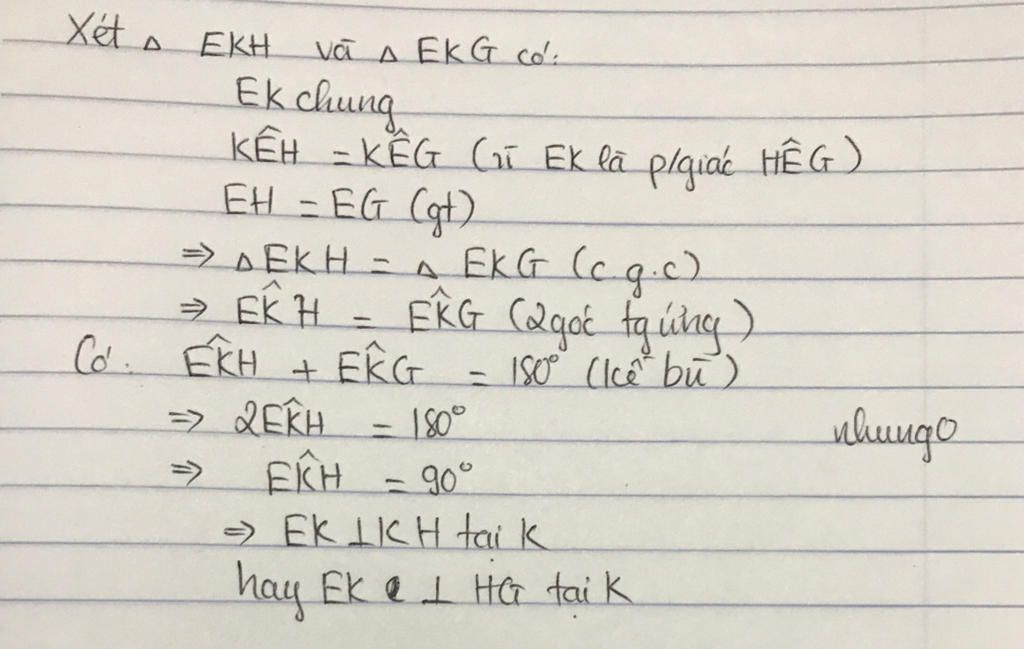 Xét △ EKH và △ EKG có:
EK chung
KÊH = KÊG (vì EK là p/giác HÊG)
EH = EG (gt)
⇒ △EKH = △ EKG (c.g.c)
⇒ EK̂H = EK̂G (2 góc tg ứng)
Có: EK̂H + EK̂G = 180° (kề bù)
⇒ 2EK̂H = 180°
nhung0
⇒ EK̂H = 90°
⇒ EK ⊥ KH tại K
hay EK ⊥ HG tại K